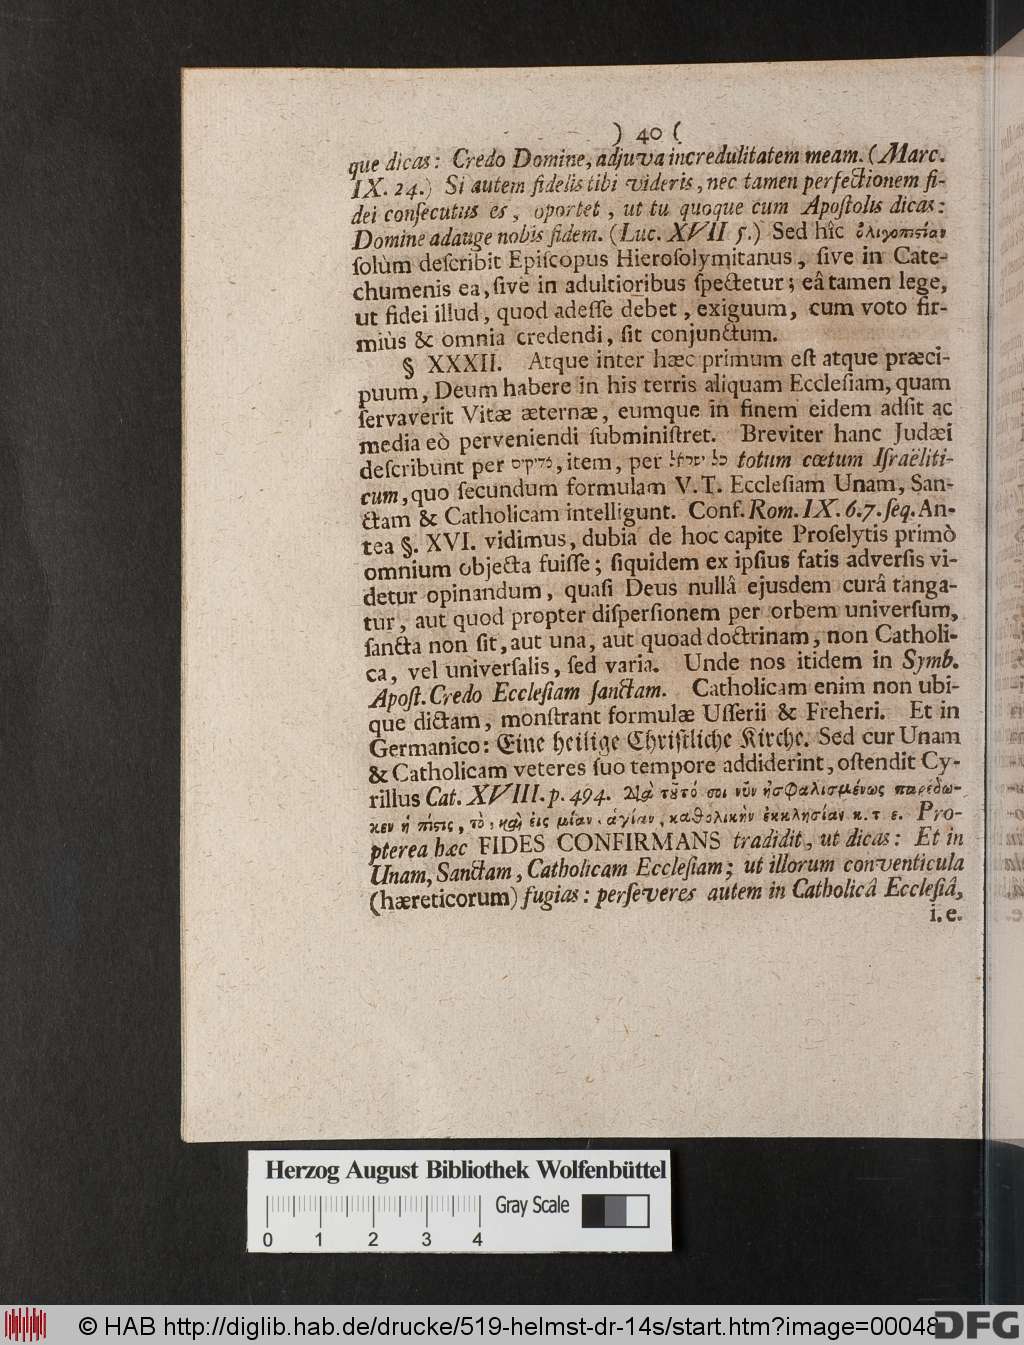 ) 40 (
que dicas: Credo Domine, adjuva incredulitatem meam. (Marc.
IX. 24.) Si autem fidelis tibi videris, nec tamen perfectionem fi-
dei conſecutus es, oportet, ut tu quoque cum Apoſtolis dicas:
Domine adauge nobis fidem. (Luc. XVII 5.) Sed hîc ὀλιγοπιςίαν
ſolùm deſcribit Epiſcopus Hieroſolymitanus, ſive in Cate-
chumenis ea, ſive in adultioribus ſpectetur; eâ tamen lege,
ut fidei illud, quod adeſſe debet, exiguum, cum voto fir-
miùs & omnia credendi, ſit conjunctum.
§ XXXII. Atque inter hæc primum eſt atque præci-
puum, Deum habere in his terris aliquam Eccleſiam, quam
ſervaverit Vitæ æternæ, eumque in finem eidem adſit ac
media eò perveniendi ſubminiſtret. Breviter hanc Judæi
deſcribunt per צדיקים, item, per כל ישראל totum cœtum Iſraëliti-
cum, quo ſecundum formulam V. T. Eccleſiam Unam, San-
ctam & Catholicam intelligunt. Conf. Rom. IX. 6.7. ſeq. An-
tea §. XVI. vidimus, dubia de hoc capite Proſelytis primò
omnium objecta fuiſſe; ſiquidem ex ipſius fatis adverſis vi-
detur opinandum, quaſi Deus nullâ ejusdem curâ tanga-
tur, aut quod propter diſperſionem per orbem univerſum,
ſancta non ſit, aut una, aut quoad doctrinam, non Catholi-
ca, vel univerſalis, ſed varia. Unde nos itidem in Symb.
Apoſt. Credo Eccleſiam ſanctam. Catholicam enim non ubi-
que dictam, monſtrant formulæ Uſſerii & Freheri. Et in
Germanico: Eine heilige Chriſtliche Kirche. Sed cur Unam
& Catholicam veteres ſuo tempore addiderint, oſtendit Cy-
rillus Cat. XVIII. p. 494. Διὰ τοῦτό σοι νῦν ἠσφαλισμένως παρέδω-
κεν ἡ πίςις, τὸ, καὶ εἰς μίαν, ἁγίαν, καθολικὴν ἐκκλησίαν κ. τ. ε. Pro-
pterea hæc FIDES CONFIRMANS tradidit, ut dicas: Et in
Unam, Sanctam, Catholicam Eccleſiam; ut illorum conventicula
(hæreticorum) fugias: perſeveres autem in Catholicâ Eccleſiâ,
i. e.
Herzog August Bibliothek Wolfenbüttel
Gray Scale
0 1 2 3 4
© HAB http://diglib.hab.de/drucke/519-helmst-dr-14s/start.htm?image=00048
DFG